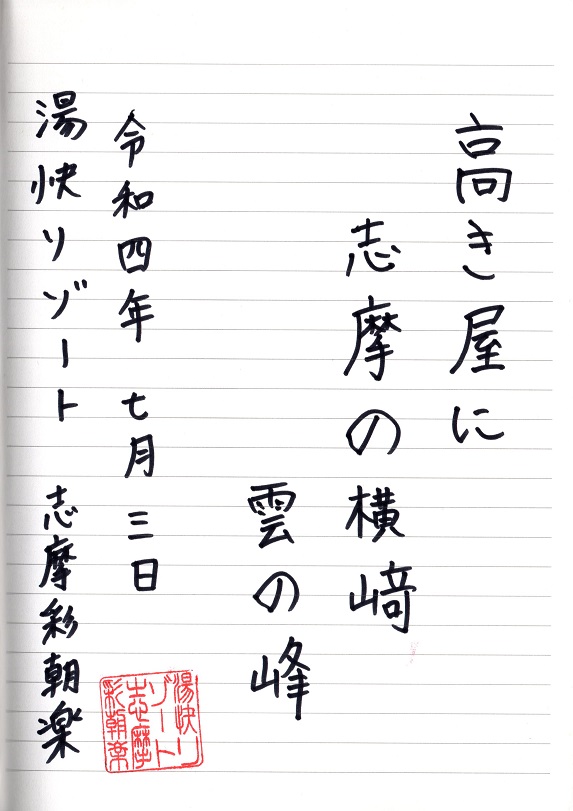 高き屋に
志摩の横﨑
雲の峰
令和四年 七月三日
湯快リゾート 志摩彩朝楽
湯快リ
ゾート
志摩
彩朝楽